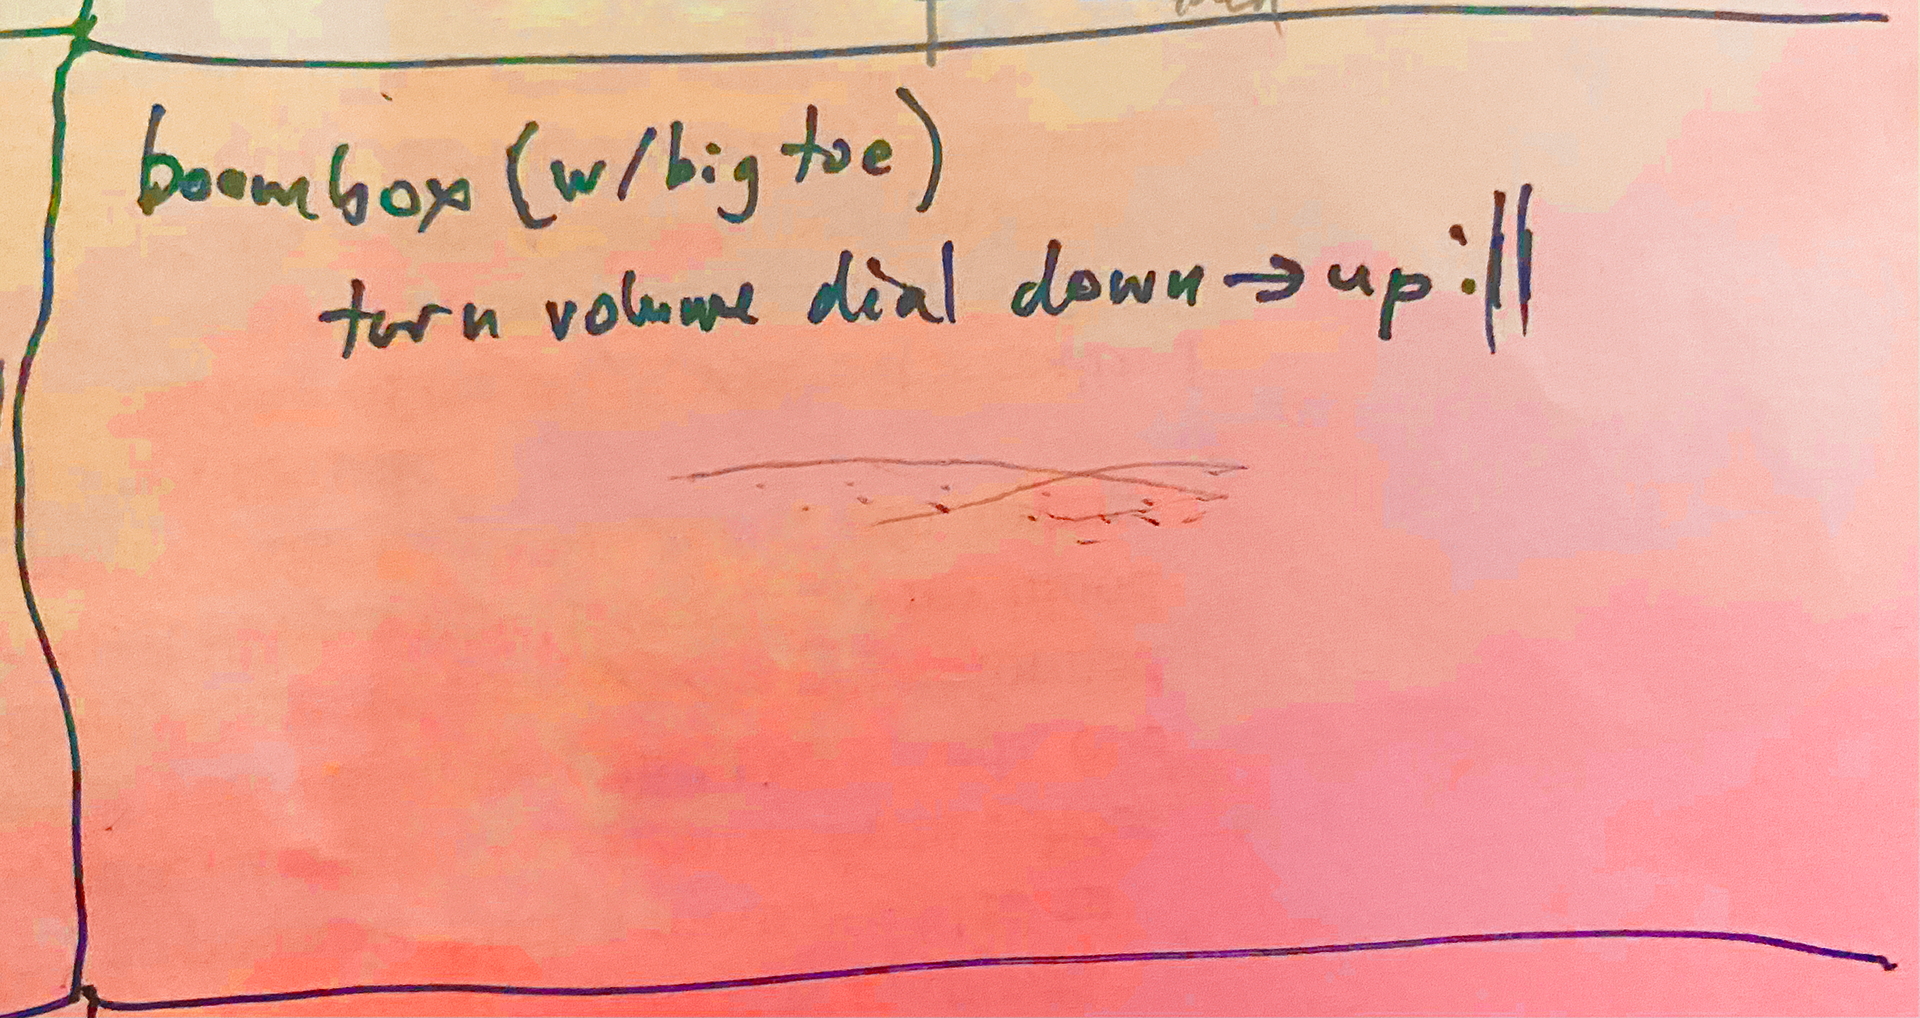 boombox (w/big toe)
turn volume dial down → up :||